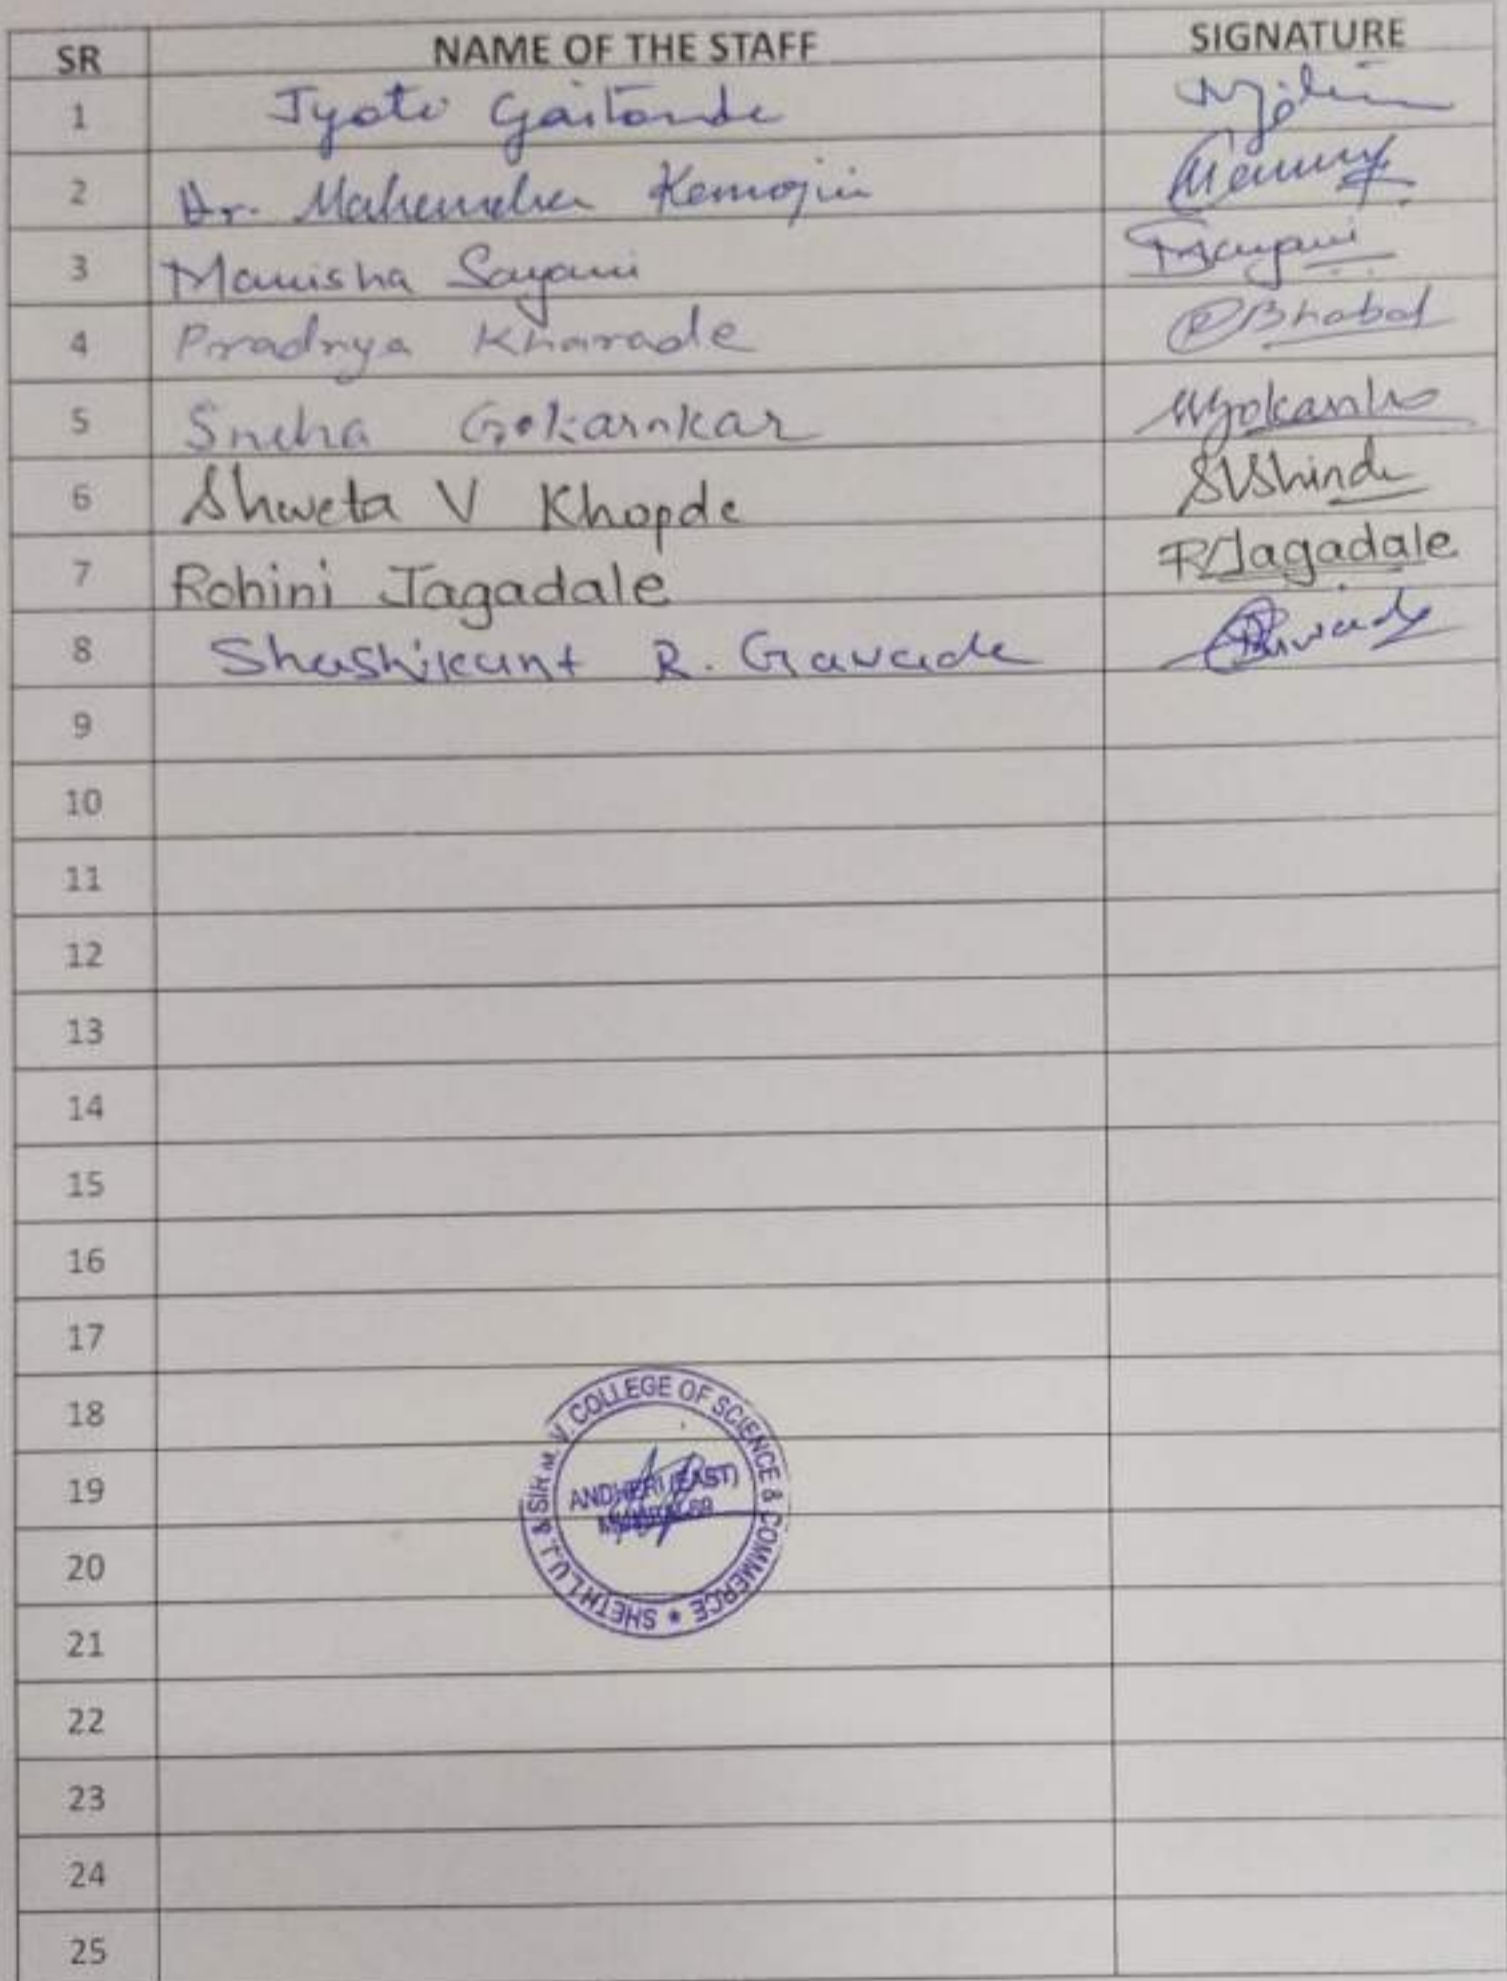 SR NAME OF THE STAFF SIGNATURE
1 Jyoti Gaitonde
2 Dr. Mahendra
3 Manisha Sayani Sayani
4 Pradnya Kharade PBhabal
5 Sneha Gokarnkar
6 Shweta V Khopde SVShinde
7 Rohini Jagadale RJagadale
8 Shashikant R. Gavade
9
10
11
12
13
14
15
16
17
18
19
20
21
22
23
24
25
SHETH L.U.J. & SIR M.V. COLLEGE OF SCIENCE & COMMERCE *
ANDHERI (EAST)